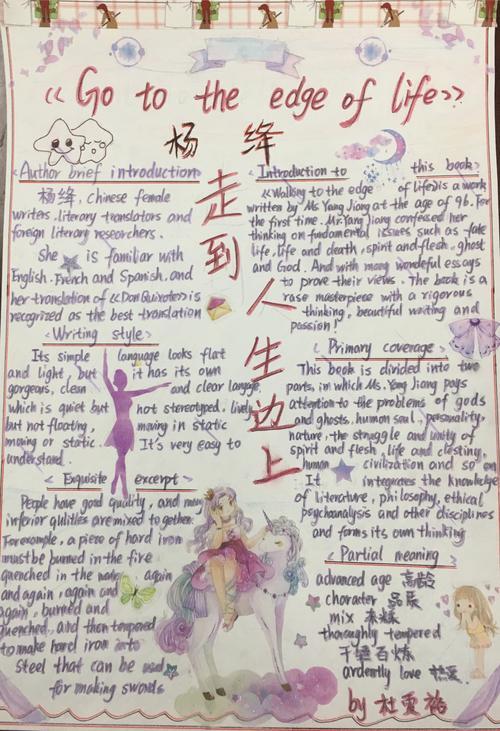 《Go to the edge of life》
杨绛
走到人生边上
<Author brief introduction>
杨绛, chinese female
writers, literary translators and
foreign literary researchers.
She is familiar with
English, French and Spanish, and
her translation of 《Don Quixote》is
recognized as the best translation
<Writing style>
Its simple language looks flat
and light, but it has its own
gorgeous, clean and clear langage,
which is quiet but not stereotyped, lively
but not floating, moving in static
moving or static. It's very easy to
understand.
< Exquisite excerpt >
People have good quality, and many
inferior qulities are mixed together.
For example, a piece of hard iron
must be burned in the fire
quenched in the again
and again, again and
again, burned and
quenched, and then tempered
to make hard iron into
steel that can be used
for making swords
<Introduction to this book>
《Walking to the edge of life》is a work
written by Ms Yang Jiang at the age of 96. For
the first time. Mr. Yang Jiang confessed her
thinking on fundamental issues such as fate
life, life and death, spirit and flesh, ghost
and God. And with many wondeful essays
to prove their views. The book is a
rase masterpiece with a rigorous
thinking, beautiful writing and
passion!
< Primary coverage >
This book is divided into two
parts, in which Ms. Yang Jiang pays
attention to the problems of gods
and ghosts, human soul, personality,
nature, the struggle and unity of
spirit and flesh, life and destiny,
human civilization and so on
It integrates the knowledge
of literature, philosophy, ethical
psychoanalysis and other disciplines
and forms its own thinking
<Partial meaning>
advanced age 高龄
character 品质
mix 夹杂
thoroughly tempered
千锤百炼
ardently love 热爱
by 杜雯裕